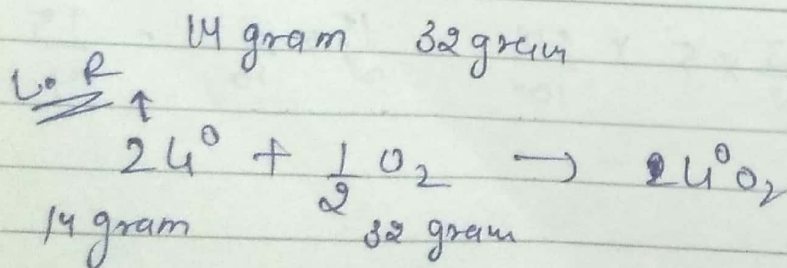 14 gram 32 gram
L.R ↑
2Li + 1/2 O₂ → 2LiO₂
14 gram 32 gram